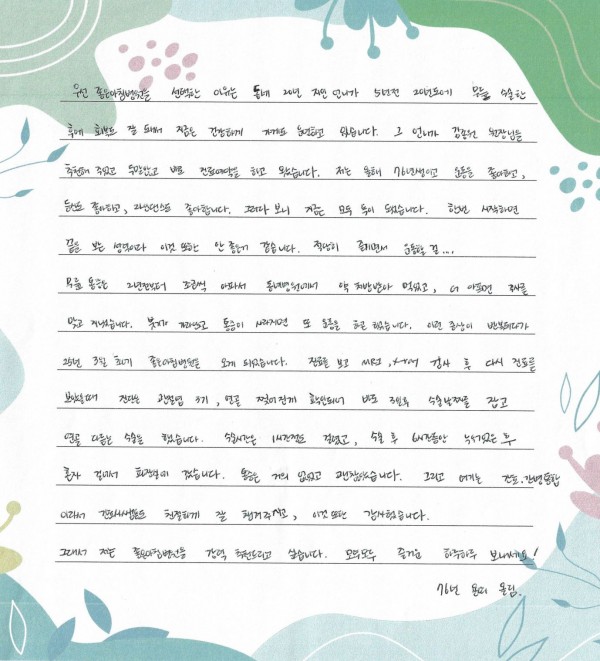 우선 좋은아침병원을 선택하는 이유는 동네 20년 지인 언니가 5년전 20년도에 무릎 수술한
후에 회복도 잘 되서 지금은 건강하게 지내고 운동하고 있습니다. 그 언니가 강종원 원장님을
추천해 주었고 두말않고 바로 진료예약을 하고 왔습니다. 저는 올해 76년생이고 운동을 좋아하고,
등산도 좋아하고, 라인댄스도 좋아합니다. 그러다 보니 지금은 모두 독이 되었습니다. 한번 시작하면
끝을 보는 성격이라 이것 또한 안 좋은거 같습니다. 적당히 즐기면서 운동할 걸....
무릎 통증은 2년전부터 조금씩 아파서 동네병원에서 약 처방받아 먹었고, 더 아프면 주사를
맞고 지냈습니다. 붓기가 가라앉고 통증이 사라지면 또 운동을 하곤 했습니다. 이런 증상이 반복되다가
25년 3월 초에 좋은아침병원을 오게 되었습니다. 진료를 보고 MRI, X-ray 검사 후 다시 진료를
보았을때 진단은 관절염 3기, 연골 찢어진게 확인되어 바로 3월 수술날짜를 잡고
연골 다듬는 수술을 했습니다. 수술시간은 1시간정도 걸렸고, 수술 후 6시간동안 누워있은 후
혼자 걸어서 화장실에 갔습니다. 통증은 거의 없었고 괜찮았습니다. 그리고 여기는 간호.간병통합
이라서 간호사쌤들도 친절하게 잘 챙겨주시고, 이것 또한 감사했습니다.
그래서 저는 좋은아침병원을 강력 추천드리고 싶습니다. 모두모두 즐거운 하루하루 보내세요!
76년 용띠 올림.